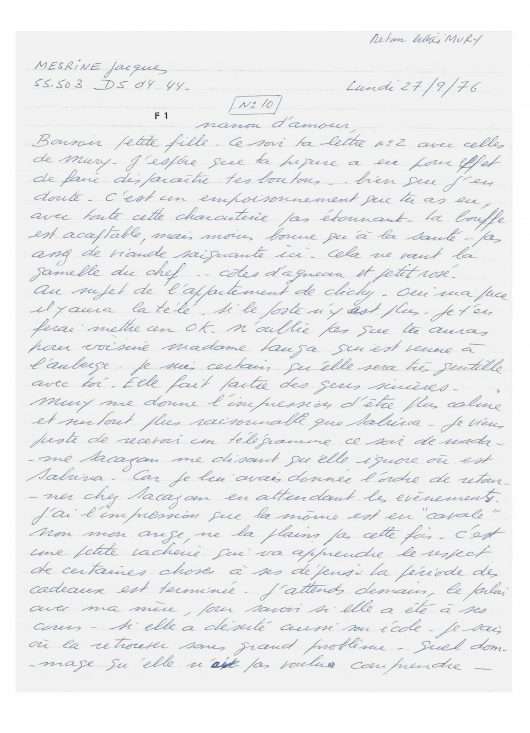 MESRINE Jacques
55.503 D5 04.44.
Lundi 27/9/76
N° 10
F 1
nanou d'amour,
Bonsoir petite fille - Ce soir ta lettre n°2 avec celles
de Mury - J'espère que ta piqure a eu pour effet
de faire disparaître tes boutons... bien que j'en
doute - C'est un empoisonnement que tu as eu,
avec toute cette charcuterie pas étonnant - la bouffe
est acceptable, mais moins bonne qu'à la santé - pas
assez de viande saignante ici - Cela ne vaut la
gamelle du chef... côtes d'agneau et petit rosé.
Au sujet de l'appartement de clichy - oui ma puce
il y aura la télé. si le poste n'y est plus - je t'en
ferai mettre un OK. N'oublie pas que tu auras
pour voisine madame Tanga qui est venue à
l'auberge - je suis certain qu'elle sera très gentille
avec toi - Elle fait partie des gens sincères -
Mury me donne l'impression d'être plus calme
et surtout plus raisonnable que Sabrina - Je viens
juste de recevoir un télégramme ce soir de mada-
-me Sacazan me disant qu'elle ignore où est
Sabrina - Car je lui avais donnée l'ordre de retour-
-ner chez Sacazan en attendant les évènements.
J'ai l'impression que la môme est en "cavale"
Non mon ange, ne la plains pas cette fois - C'est
une petite vacherie qui va apprendre le respect
de certaines choses à ses dépens - la période des
cadeaux est terminée - J'attends demain, le parloir
avec ma mère, pour savoir si elle a été à ses
cours - si elle a déserté aussi son école - Je sais
où la retrouver sans grand problème - quel dom-
-mage qu'elle n'ait pas voulue comprendre -